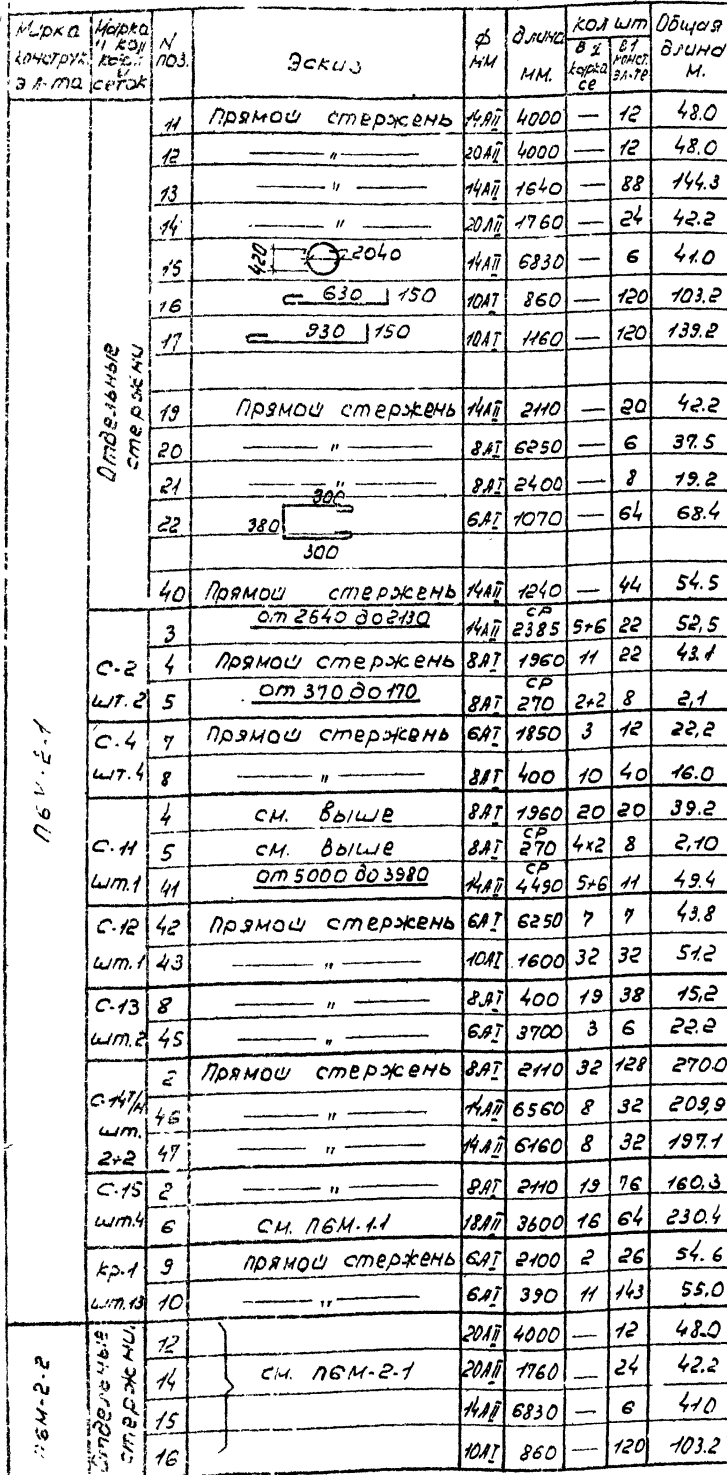 Марка конструк. эл-та | Марка и кол. карк. и сеток | N поз. | Эскиз | ф мм | длина мм. | кол шт в 1 каркасе | в 1 конст. эл-те | Общая длина м.
П6М-2-1
Отдельные стержни
11 Прямой стержень 14АII 4000 — 12 48.0
12 — " — 20АII 4000 — 12 48.0
13 — " — 14АII 1640 — 88 144.3
14 — " — 20АII 1760 — 24 42.2
15 420 2040 14АII 6830 — 6 41.0
16 630 150 10АI 860 — 120 103.2
17 930 150 10АI 1160 — 120 139.2
19 Прямой стержень 14АII 2110 — 20 42.2
20 — " — 8АI 6250 — 6 37.5
21 — " — 8АI 2400 — 8 19.2
22 300 380 300 6АI 1070 — 64 68.4
40 Прямой стержень 14АII 1240 — 44 54.5
С-2 шт. 2
3 от 2640 до 2130 14АII ср 2385 5+6 22 52,5
4 Прямой стержень 8АI 1960 11 22 43.1
5 от 370 до 170 8АI ср 270 2+2 8 2,1
С.4 шт. 4
7 Прямой стержень 6АI 1850 3 12 22,2
8 — " — 8АI 400 10 40 16.0
С-11 шт.1
4 см. выше 8АI 1960 20 20 39.2
5 см. выше 8АI ср 270 4х2 8 2,10
41 от 5000 до 3980 14АII ср 4490 5+6 11 49.4
С-12 шт.1
42 Прямой стержень 6АI 6250 7 7 43.8
43 — " — 10АI 1600 32 32 51.2
С-13 шт.2
8 — " — 8АI 400 19 38 15,2
45 — " — 6АI 3700 3 6 22.2
С-14т/н шт. 2+2
2 Прямой стержень 8АI 2110 32 128 270.0
46 — " — 14АII 6560 8 32 209,9
47 — " — 14АII 6160 8 32 197.1
С-15 шт.4
2 — " — 8АI 2110 19 76 160,3
6 см. П6М-1.1 18АII 3600 16 64 230.4
кр.1 шт.13
9 прямой стержень 6АI 2100 2 26 54.6
10 — " — 6АI 390 11 143 55.0
П6М-2-2
Отдельные стержни.
см. П6М-2-1
12 20АII 4000 — 12 48.0
14 20АII 1760 — 24 42.2
15 14АII 6830 — 6 41.0
16 10АI 860 — 120 103.2